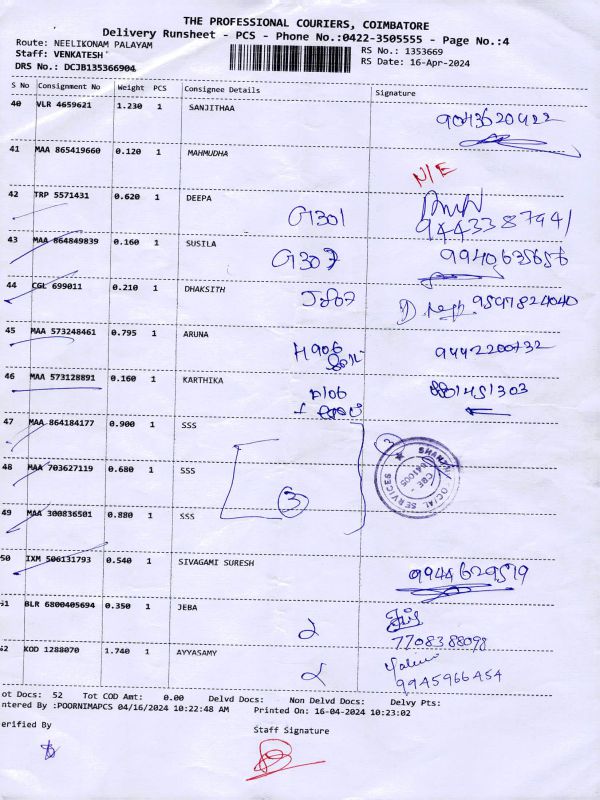 THE PROFESSIONAL COURIERS, COIMBATORE
Delivery Runsheet - PCS - Phone No.:0422-3505555 - Page No.:4
Route: NEELIKONAM PALAYAM
RS No.: 1353669
Staff: VENKATESH
RS Date: 16-Apr-2024
DRS No.: DCJB135366904
S No Consignment No Weight PCS Consignee Details Signature
40 VLR 4659621 1.230 1 SANJITHAA 9043620422
41 MAA 865419660 0.120 1 MAHMUDHA N/E
42 TRP 5571431 0.620 1 DEEPA G301 9443387941
43 MAA 864849839 0.160 1 SUSILA G307 9940635656
44 CGL 699011 0.210 1 DHAKSITH J807 9597824040
45 MAA 573248461 0.795 1 ARUNA H906 9442200732
46 MAA 573128891 0.160 1 KARTHIKA A106
47 MAA 864184177 0.900 1 SSS
48 MAA 703627119 0.680 1 SSS 3
49 MAA 300836501 0.880 1 SSS
SOCIAL SERVICES
CBE
641005
50 IXM 506131793 0.540 1 SIVAGAMI SURESH 9944629519
51 BLR 6800405694 0.350 1 JEBA 2 7708388098
52 KOD 1288070 1.740 1 AYYASAMY 2 9945966454
ot Docs: 52 Tot COD Amt: 0.00 Delvd Docs: Non Delvd Docs: Delvy Pts:
ntered By :POORNIMAPCS 04/16/2024 10:22:48 AM Printed On: 16-04-2024 10:23:02
erified By
Staff Signature